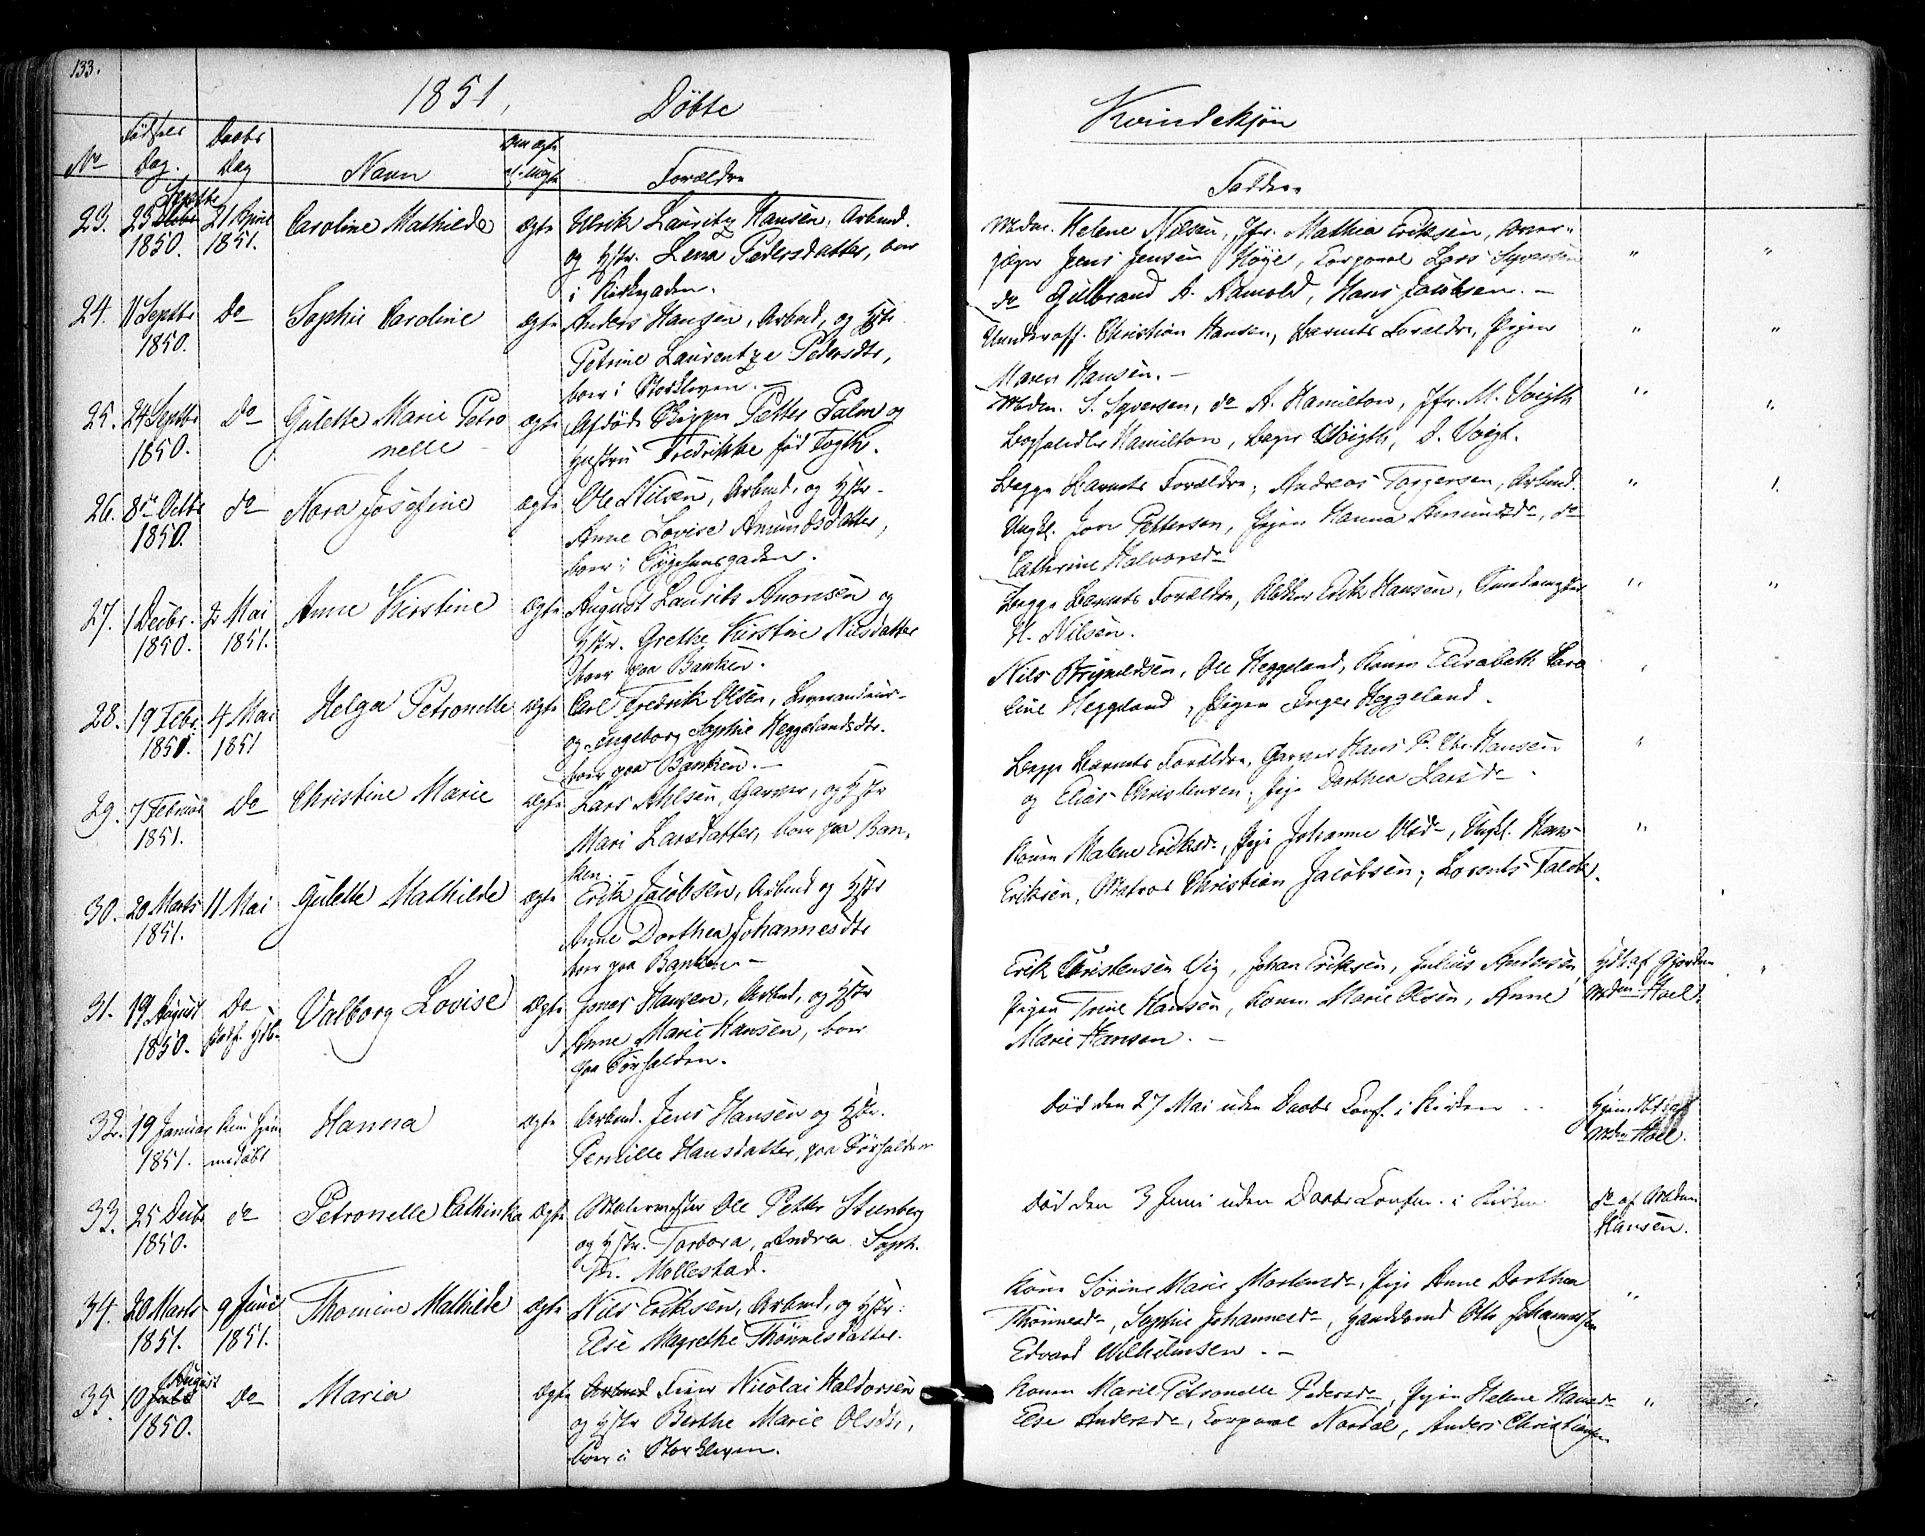 133.
1851, Døbte Kvindekjøn
No Fødsels Dag. Daabs Dag Navn Om ægte el. uægte Forældre Faddere
23. 23 Septbr 1850. 21 April 1851. Caroline Mathilde ægte Ulrik Lauritz Hansen, Arbmd.
og Hstr. Lena Pedersdatter, boer
i Kirkegaden.
Mdm. Helene Nilsen, Jfr. Mathia Eriksen,
Jens Jensen Høye, Corporal Lars Syversen
do Gulbrand A. Ramold, Hans Jacobsen. -
24. 11 Septbr 1850. Do Sophie Caroline ægte Anders Hansen, Arbmd, og Hstr
Petrine Laurentze Pedersdtr,
boer i Storkleven. -
Underoff. Christian Hansen, Barnets Forældre, Pigen
Maren Hansen. -
25. 24 Septbr 1850. Do Gulette Marie Petronelle ægte Afdøde Skipper Petter Palm og
Hustru Fredrikke fød Fogth.
Mdm. S. Syversen, do A. Hamilton, Jfr. M. Voigth
Boghandler Hamilton, Voigth, S. Voigt.
26. 8de Octbr 1850. do Nora Josefine ægte Ole Nilsen, Arbmd, og Hstr.
Anne Lovise Amundsdatter,
boer i
Begge Barnets Forældre, Andreas Torgersen, Arbmd.
Ungk. Petterson, Pigen Hanna Amundsdr, do
Cathrine Halvorsdr
27. 1 Decbr. 1850. 2 Mai 1851. Anne Kirstine ægte August Laurits Amonsen og
Hstr. Grethe Kirstine Nilsdatter
boer paa Banken.
Begge Barnets Forældre, Erik Hansen,
H. Nilsen.
28. 19 Febr. 1851. 4 Mai 1851 Helga Petronelle ægte Carl Fredrik Olsen,
og Ingeborg Sophie Heggelandsdtr.
boer paa Banken. -
Nils Brynildsen, Ole Heggeland, Konen Elisabeth Caro
line Heggeland, Pigen Inger Heggeland.
29. 7 Februar 1851. Do Christine Marie ægte Lars Ahlsen, Garver, og Hstr
Mari Larsdatter, boer paa Ban-
ken.
Begge Barnets Forældre, Garver Hans P. Chr. Hansen
og Elias Christensen, Pige Dorthea Larsdr.
30. 20 Marts 1851. 11 Mai Gulette Mathilde ægte Erik Jacobsen, Arbmd og Hstr
Anne Dorthea Johannesdtr
boer paa Banken. -
Konen Malene Eriksdr, Pige Johanne Olsdr, Ungk. Hans
Eriksen, Matros Christian Jacobsen, Lorents Falck.
31. 19 August 1850. Do Valborg Lovise Ægte Jonas Hansen, Arbmd, og Hstr
Anne Marie Hansen, boer
paa Sørhalden.
Erik Christensen Vig, Johan Eriksen, Julius Andersen,
Pigen Trine Hansen, Konen Marie Olsen, Anne
Marie Hansen. -
Hdbt af Gjordm.
Mdm Hoel.
32. 19 Januar 1851. Kun hjem medøbt Hanna ægte Arbmd. Jens Hansen og Hstr.
Pernille Hansdatter, paa Sørhalden
Død den 27 Mai uden Daabs Conf. i Kirken
Hjemdbt af
Mdm Hoel.
33. 25 Decbr 1850. do Petronelle Cathinka Ægte Malermester Ole Petter Steenberg
og Hstr. Torbora, Andrea Soph.
Møllestad.
Død den 3 Juni uden Daabs Confm. i Kirken
do af Mdm
Hansen.
34. 20 Marts 1851. 9 Juni 1851. Thomine Mathilde ægte Nils Eriksen, Arbmd, og Hstr.
Else Magrethe Thønnesdatter.
Kone Sørine Marie Mortensdr, Pige Anne Dorthea
Thønnesdr, Sophie Johannesdr, Otto Johannesen
Edvard Wilhelmsen. -
35. 10 August 1850. Do Maria ægte Nicolai Haldorsen
og Hstr Berthe Marie Olsdtr,
boer i Storkleven.
Konen Marie Petronelle Pedersdr, Pigen Helene Hansdr
Else Andersdr, Corporal Nordal, Anders Christiansen